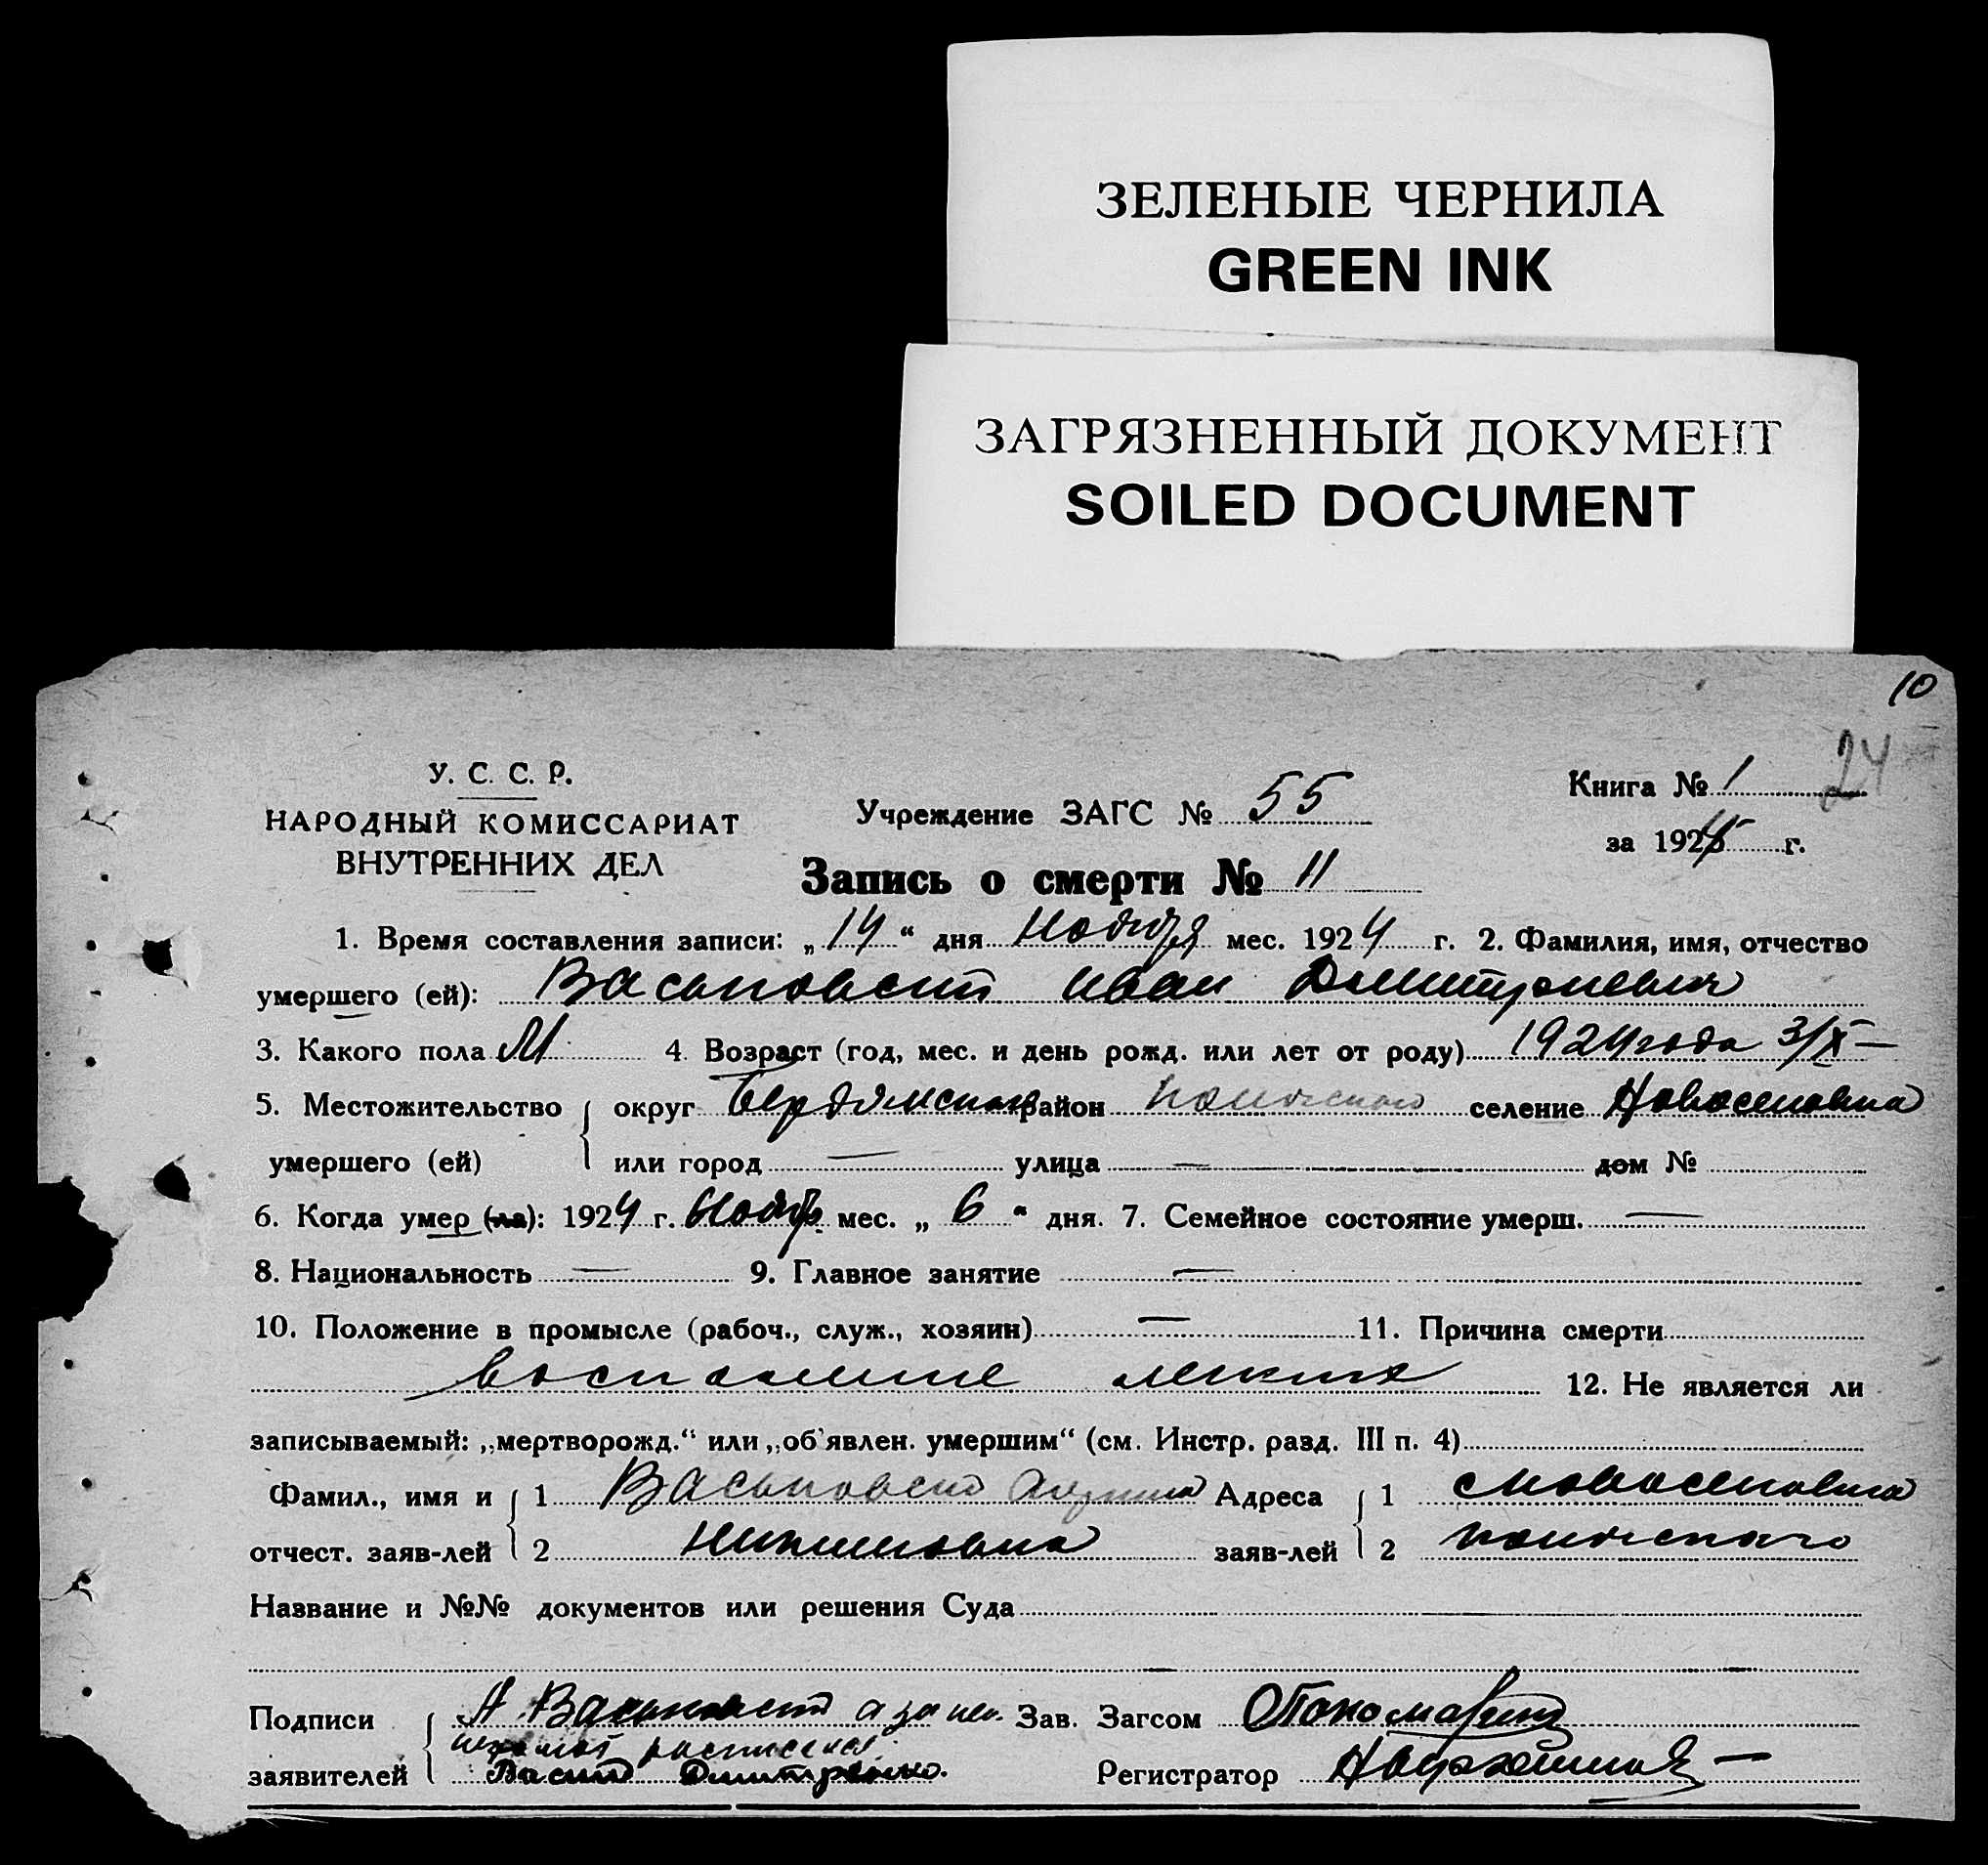 ЗЕЛЕНЫЕ ЧЕРНИЛА
GREEN INK
ЗАГРЯЗНЕННЫЙ ДОКУМЕНТ
SOILED DOCUMENT
10
24
У. С. С. Р.
НАРОДНЫЙ КОМИССАРИАТ
ВНУТРЕННИХ ДЕЛ
Учреждение ЗАГС № 55
Книга № 1
за 192 г.
Запись о смерти № 11
1. Время составления записи: „14“ дня Ноября мес. 1924 г. 2. Фамилия, имя, отчество
умершего (ей): Васьковский Иван Димитриевич
3. Какого пола М 4. Возраст (год, мес. и день рожд. или лет от роду) 1924 года 3/X –
5. Местожительство округ Бердянский район селение Новоселовка
умершего (ей) или город — улица — дом №
6. Когда умер (ла): 1924 г. Нояб. мес. „ 6 “ дня. 7. Семейное состояние умерш. —
8. Национальность — 9. Главное занятие —
10. Положение в промысле (рабоч., служ., хозяин) — 11. Причина смерти
воспаление легких 12. Не является ли
записываемый: „мертворожд.“ или „об'явлен. умершим“ (см. Инстр. разд. III п. 4)
Фамил., имя и 1 Васьковский Адреса 1 с Новоселовка
отчест. заяв-лей 2 заяв-лей 2
Название и №№ документов или решения Суда
Подписи А а за Зав. Загсом
расписался
заявителей Регистратор